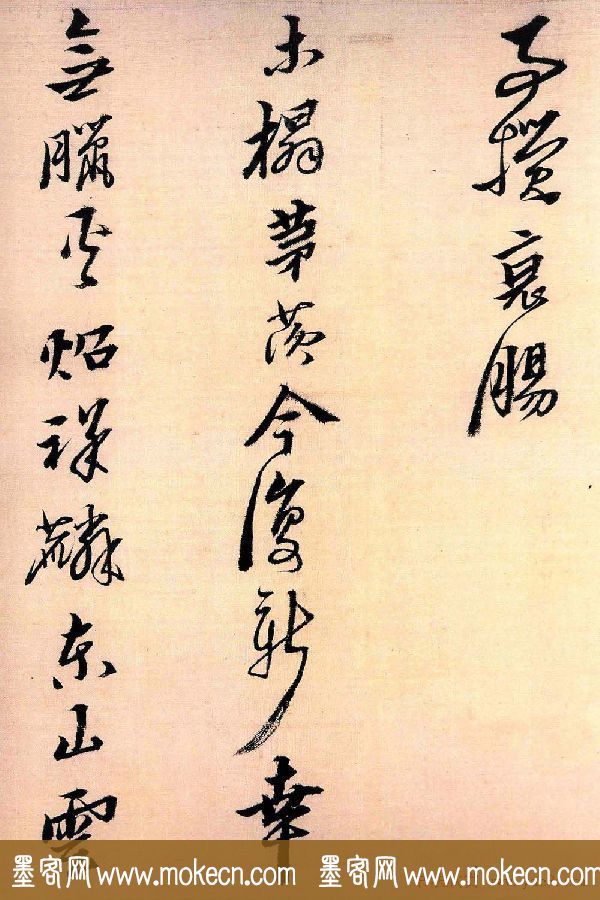 腸
土榻茅茨今復新幸
無祥麟東山雲
墨客网 www.mokecn.com 墨客网 www.mokecn.com